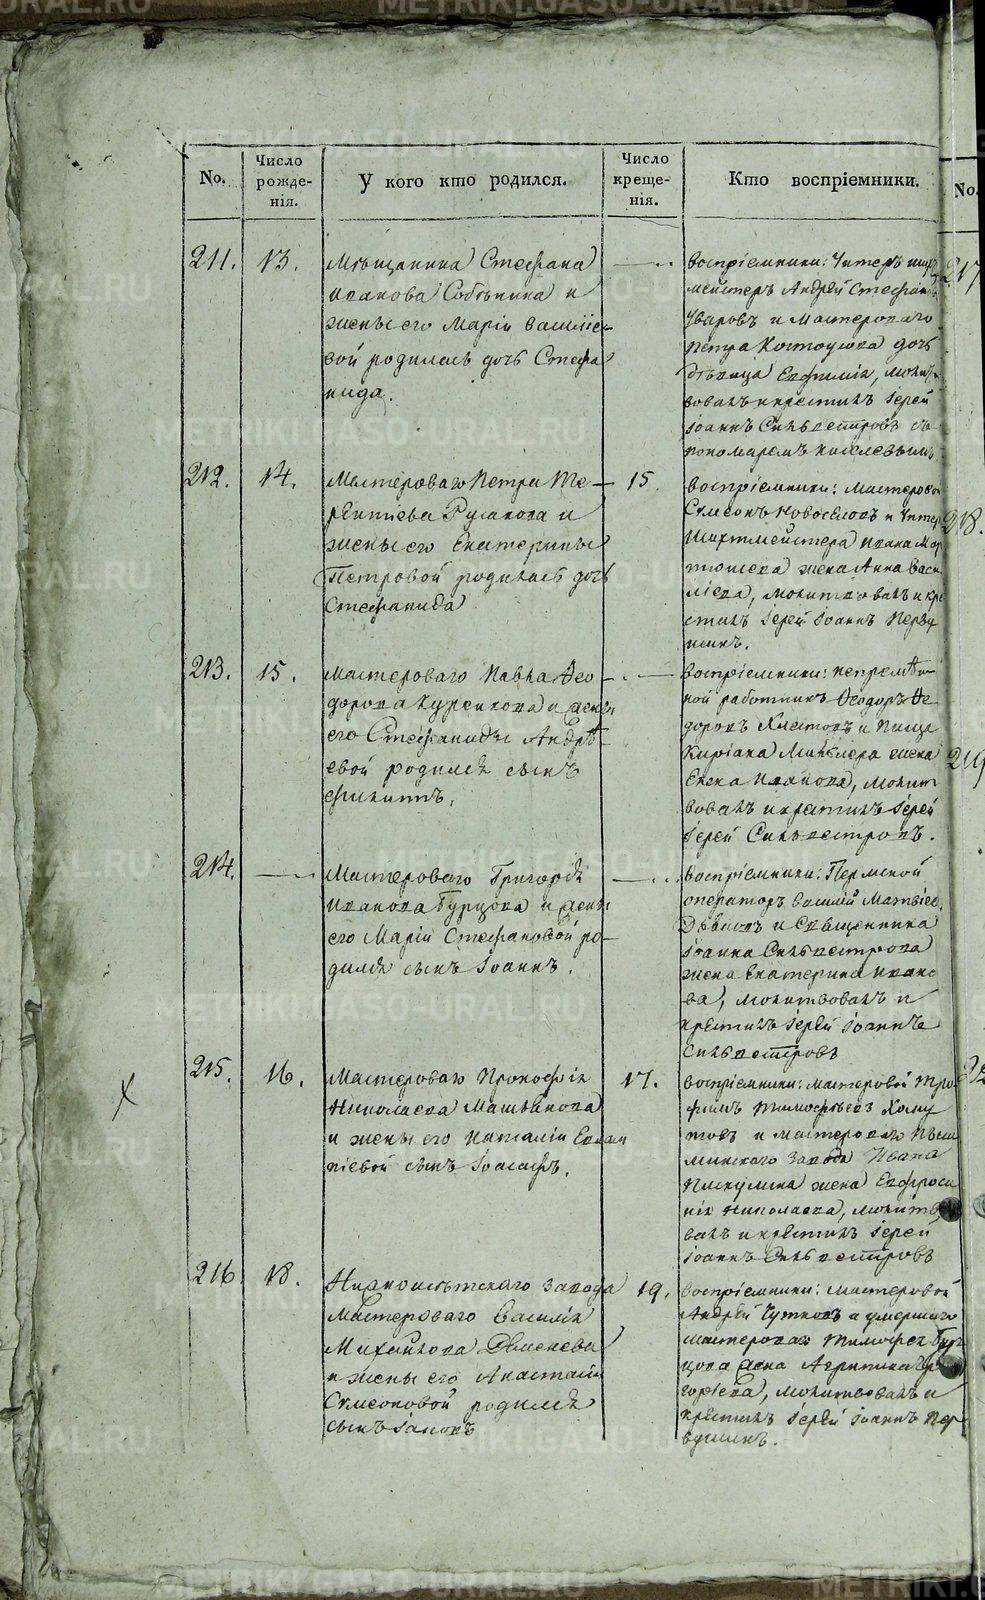 No.
Число рожде-
нія.
У кого кто родился.
Число
креще-
нія.
Кто воспріемники.
No.
211.
13.
Мѣщанина Стефана
Иванова Собѣнина и
жены его Маріи Василіе
вой родилась дочь Стефа
нида.
воспріемники:
мейстеръ Андрей Стефан
Уваровъ и Мастероваго
Петра дочь
дѣвица Евфимія, молит
вовалъ и крестилъ Іерей
Іоаннъ Сильвестровъ съ
пономаремъ Киселевымъ
212.
14.
Мастероваго Петра Те-
рентіева Русакова и
жены его Екатерины
Петровой родилась дочь
Стефанида
15.
воспріемники: Мастеровой
Симеонъ Новоселовъ и
Шихтмейстера Ивана Мар
жена Анна Васи
ліева, молитвовалъ и кре
стилъ Іерей Іоаннъ Перву
шинъ.
213.
15.
Мастероваго Павла Ѳео-
дорова Куренкова и жены
его Стефаниды Андрѣ-
евой родился сынъ
Филиппъ.
воспріемники: непремѣн-
ной работникъ Ѳеодоръ Ѳе-
доровъ и
Киріака жена
Елена Иванова, молит
вовалъ и крестилъ Іерей
Іерей Сильвестровъ.
214.
Мастероваго Григорія
Иванова Бурцова и жены
его Маріи Стефановой ро-
дился сынъ Іоаннъ.
воспріемники: Пермской
операторъ Василій Матвіев
и Священника
Іоанна Сильвестрова
жена Екатерина Ивано
ва, молитвовалъ и
крестилъ Іерей Іоаннъ
Сильвестровъ
215.
16.
Мастероваго Прокофія
Николаева Машьянова
и жены его Наталіи Евлам
піевой сынъ Іоасафъ.
17.
воспріемники: Мастеровой Тро
фимъ Тимофѣевъ Хому
товъ и мастероваго Пыш
минскаго завода Ивана
Пискулина жена Евфроси
нія Николаева, молитво
валъ и крестилъ Іерей
Іоаннъ Сильвестровъ
216.
18.
Нижноисетскаго завода
Мастероваго Василія
Михайлова Деменева
и жены его Анастасіи
Симеоновой родился
сынъ Іаковъ
19.
воспріемники: мастеровой
Андрей Чутковъ и умершаго
мастероваго Тимофея Бур
цова жена Агрипина Гри
горіева, молитвовалъ и
крестилъ Іерей Іоаннъ Пер
вушинъ.
217
218.
219
METRIKI.GASO-URAL.RU